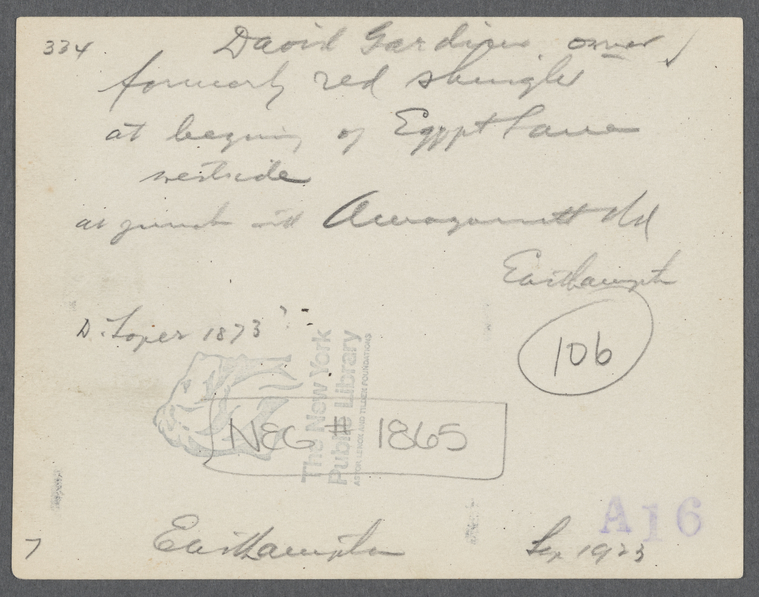 334
David Gardiner owner
formerly red shingle
at begining of Egypt Lane
westside
at junct with Amagansett Rd
Easthampton
D. Loper 1873 ?
106
The New York
Public Library
ASTOR LENOX AND TILDEN FOUNDATIONS
NEG # 1865
A16
7 Easthampton Sep 1923